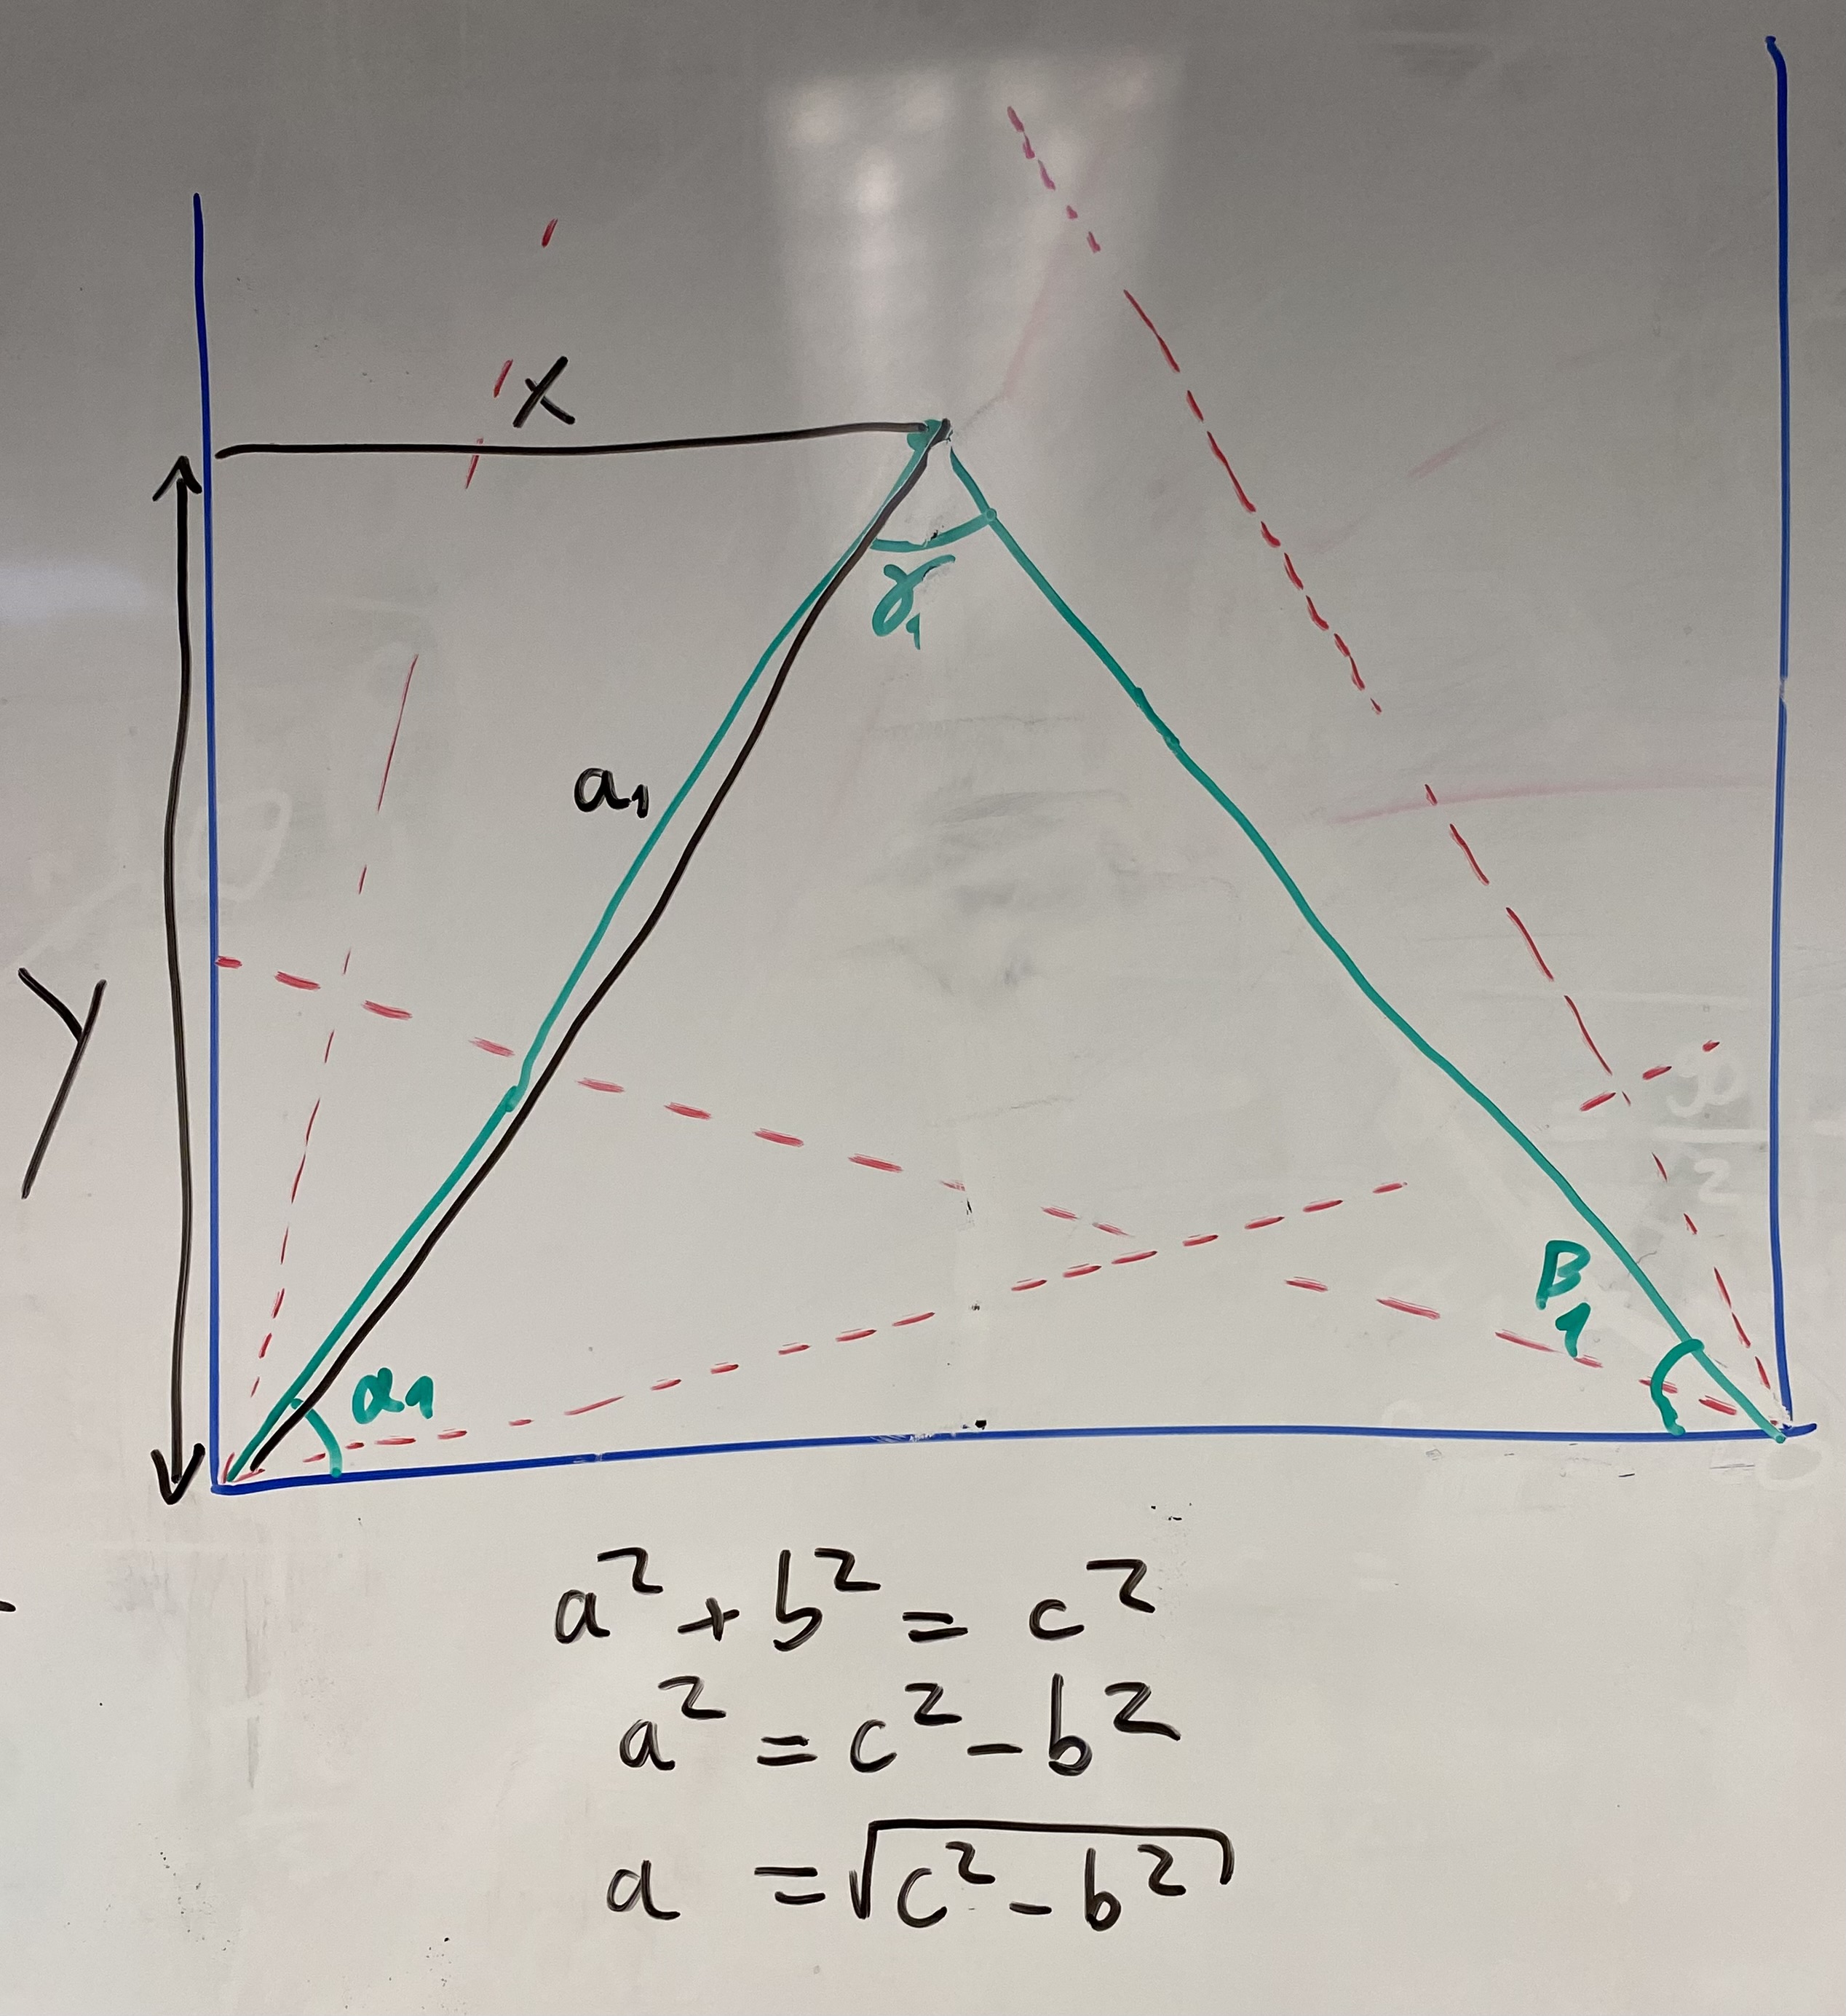 X
γ₁
a₁
Y
β
1
α₁
a² + b² = c²
a² = c² - b²
a = √(c² - b²)